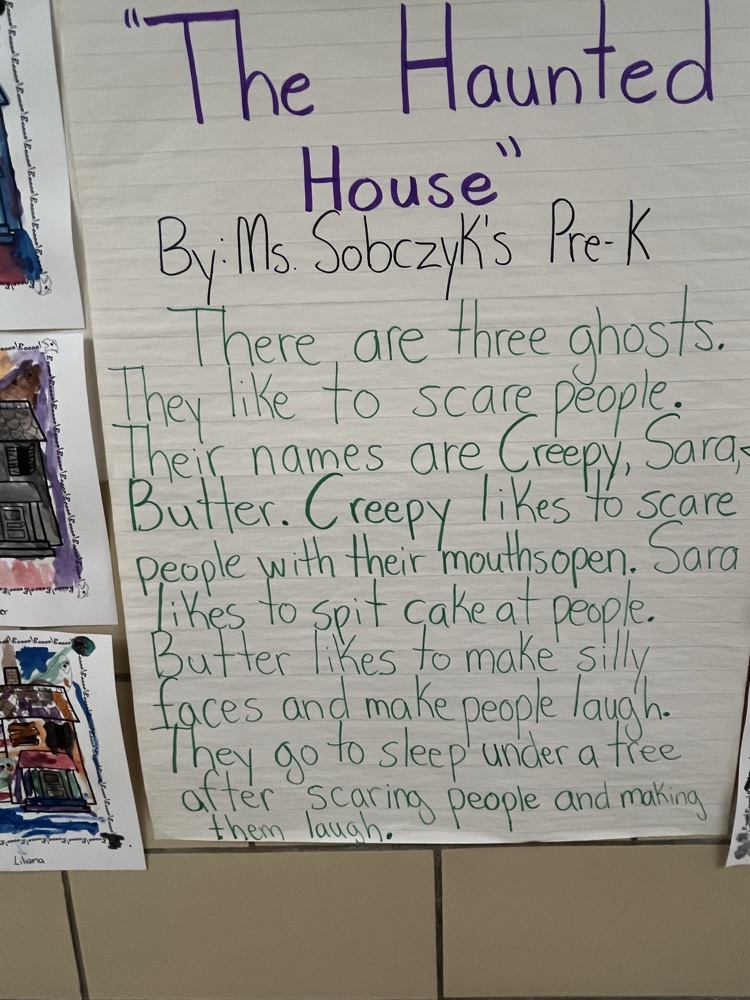 "The Haunted
House"
By: Ms. Sobczyk's Pre-K
There are three ghosts.
They like to scare people.
Their names are Creepy, Sara,
Butter. Creepy likes to scare
people with their mouths open. Sara
likes to spit cake at people.
Butter likes to make silly
faces and make people laugh.
They go to sleep under a tree
after scaring people and making
them laugh.
Liliana